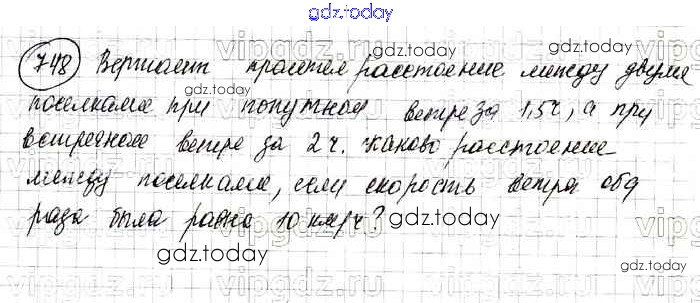 gdz.today
748 Вертолет пролетел расстояние между двумя
поселками при попутном ветре за 1,5 ч, а при
встречном ветре за 2 ч. Каково расстояние
между поселками, если скорость ветра оба
раза была равна 10 км/ч?
gdz.today
gdz.today
gdz.today
gdz.today
gdz.today
gdz.today
vipgdz.today
vipgdz.today